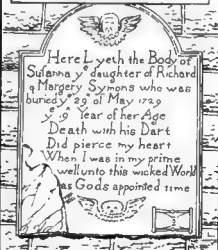 Here Lyeth the Body of
Susanna yᵉ daughter of Richard
& Margery Symons who was
buried yᵉ 29 of May 1729
yᵉ 19 Year of her Age
Death with his Dart
Did pierce my heart
When I was in my prime
well unto this wicked World
as Gods appointed Time